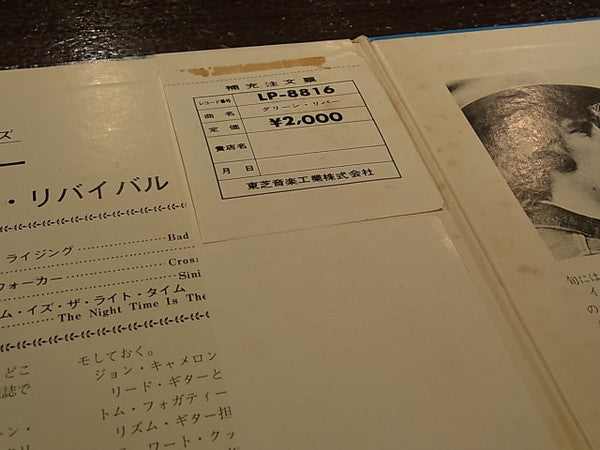 補充注文票
レコード番号 LP-8816
曲名 グリーン・リバー
定価 ¥2,000
賣店名
月日
東芝音楽工業株式会社
ズ
・リバイバル
ライジング Bad
フォーカー Cross
Sini
ム・イズ・ザ・ライト・タイム
The Night Time Is The
どこ
誌で
モしておく。
ジョン・キャメロン
リード・ギターと
トム・フォガティー
リズム・ギター担
ワート・クッ
旬には
イ
の